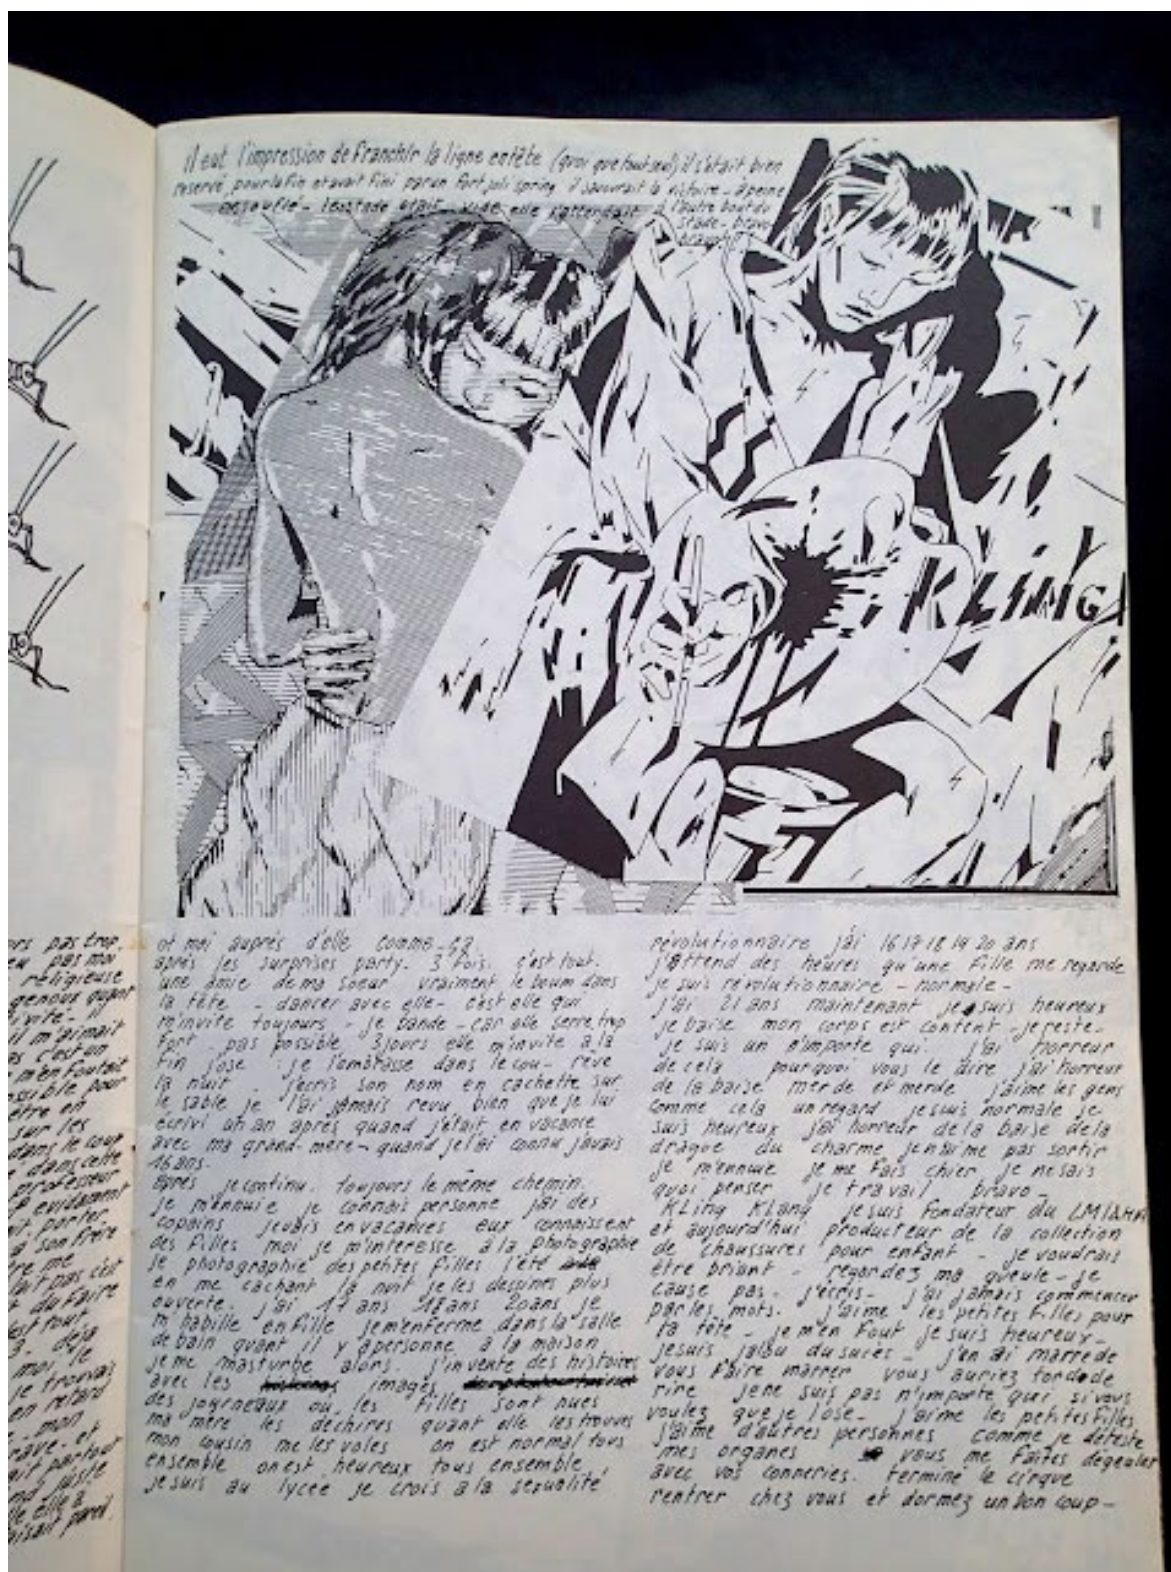 il eut l'impression de franchir la ligne entête (quoi que tout seul) il s'était bien
reservé pour la fin et avait fini par un fort joli spring il sauvrait la victoire - a peine
essouflé - le stade était vide elle l'attendait à l'autre bout du
stade - bravo
bravo
KLING
ors pas trop,
eu pas moi
religieuse
genoux quant
ivité - il
il m'aimait
as c'est un
m'en foutait
ssible pour
être en
sur les
dans le coup
dans cette
professeur
evidament
ait porter
à son frère
re me
lait pas c'est
du faire
est tout
3. déja
moi je
je trouvais
en retard
mon
rave - et
ait partout
nd juste
lle elle a
aisait pareil.
et moi auprés d'elle comme-ça
après les surprises party. 3 fois. c'est tout.
une amie de ma soeur vraiment le boum dans
la tête - dancer avec elle - c'est elle qui
m'invite toujours - je bande - car elle serre trop
fort. pas possible 3 jours elle m'invite a la
fin j'ose : je l'embrasse dans le cou - rêve
la nuit - j'ecris son nom en cachette sur
le sable je l'ai jamais revu bien que je lui
écrivi un an après quand j'était en vacance
avec ma grand-mère - quand je l'ai connu j'avais
16 ans.
après je continu. toujours le même chemin.
je m'ennuie je connais personne j'ai des
copains je vais en vacances eux connaissent
des filles moi je m'interesse à la photographie
je photographie des petites filles l'été
en me cachant la nuit je les dessines plus
ouverte. j'ai 17 ans 18 ans 20 ans je
m'habille en fille je m'enferme dans la salle
de bain quant il y a personne à la maison
je me masturbe alors. j'invente des histoires
avec les images
des journeaux ou les filles sont nues
ma mère les déchires quant elle les trouves
mon cousin me les voles on est normal tous
ensemble on est heureux tous ensemble
je suis au lycée je crois a la sexualité
révolutionnaire j'ai 16 17 18 19 20 ans
j'attend des heures qu'une fille me regarde
je suis révolutionnaire - normale -
j'ai 21 ans maintenant je suis heureux
je baise mon corps est content - je reste -
je suis un n'importe qui. j'ai horreur
de cela pourquoi vous le dire j'ai horreur
de la baise merde et merde j'aime les gens
comme cela un regard je suis normale je
suis heureux j'ai horreur de la baise de la
drague du charme je n'aime pas sortir
je m'ennuie je me fais chier je ne sais
quoi penser je travail bravo -
KLing KLang je suis fondateur du
et aujourd'hui producteur de la collection
de chaussures pour enfant - je voudrais
être briant - regardez ma gueule - je
cause pas - j'écris - j'ai jamais commencer
par les mots. j'aime les petites filles pour
la tête - je m'en fout je suis heureux -
je suis jalou du succes - j'en ai marre de
vous faire marrer vous auriez tord de
rire je ne suis pas n'importe qui si vous
voulez que je l'ose - j'aime les petites filles
j'aime d'autres personnes comme je déteste
mes organes vous me faites degeuler
avec vos conneries. terminé le cirque
rentrer chez vous et dormez un bon coup -